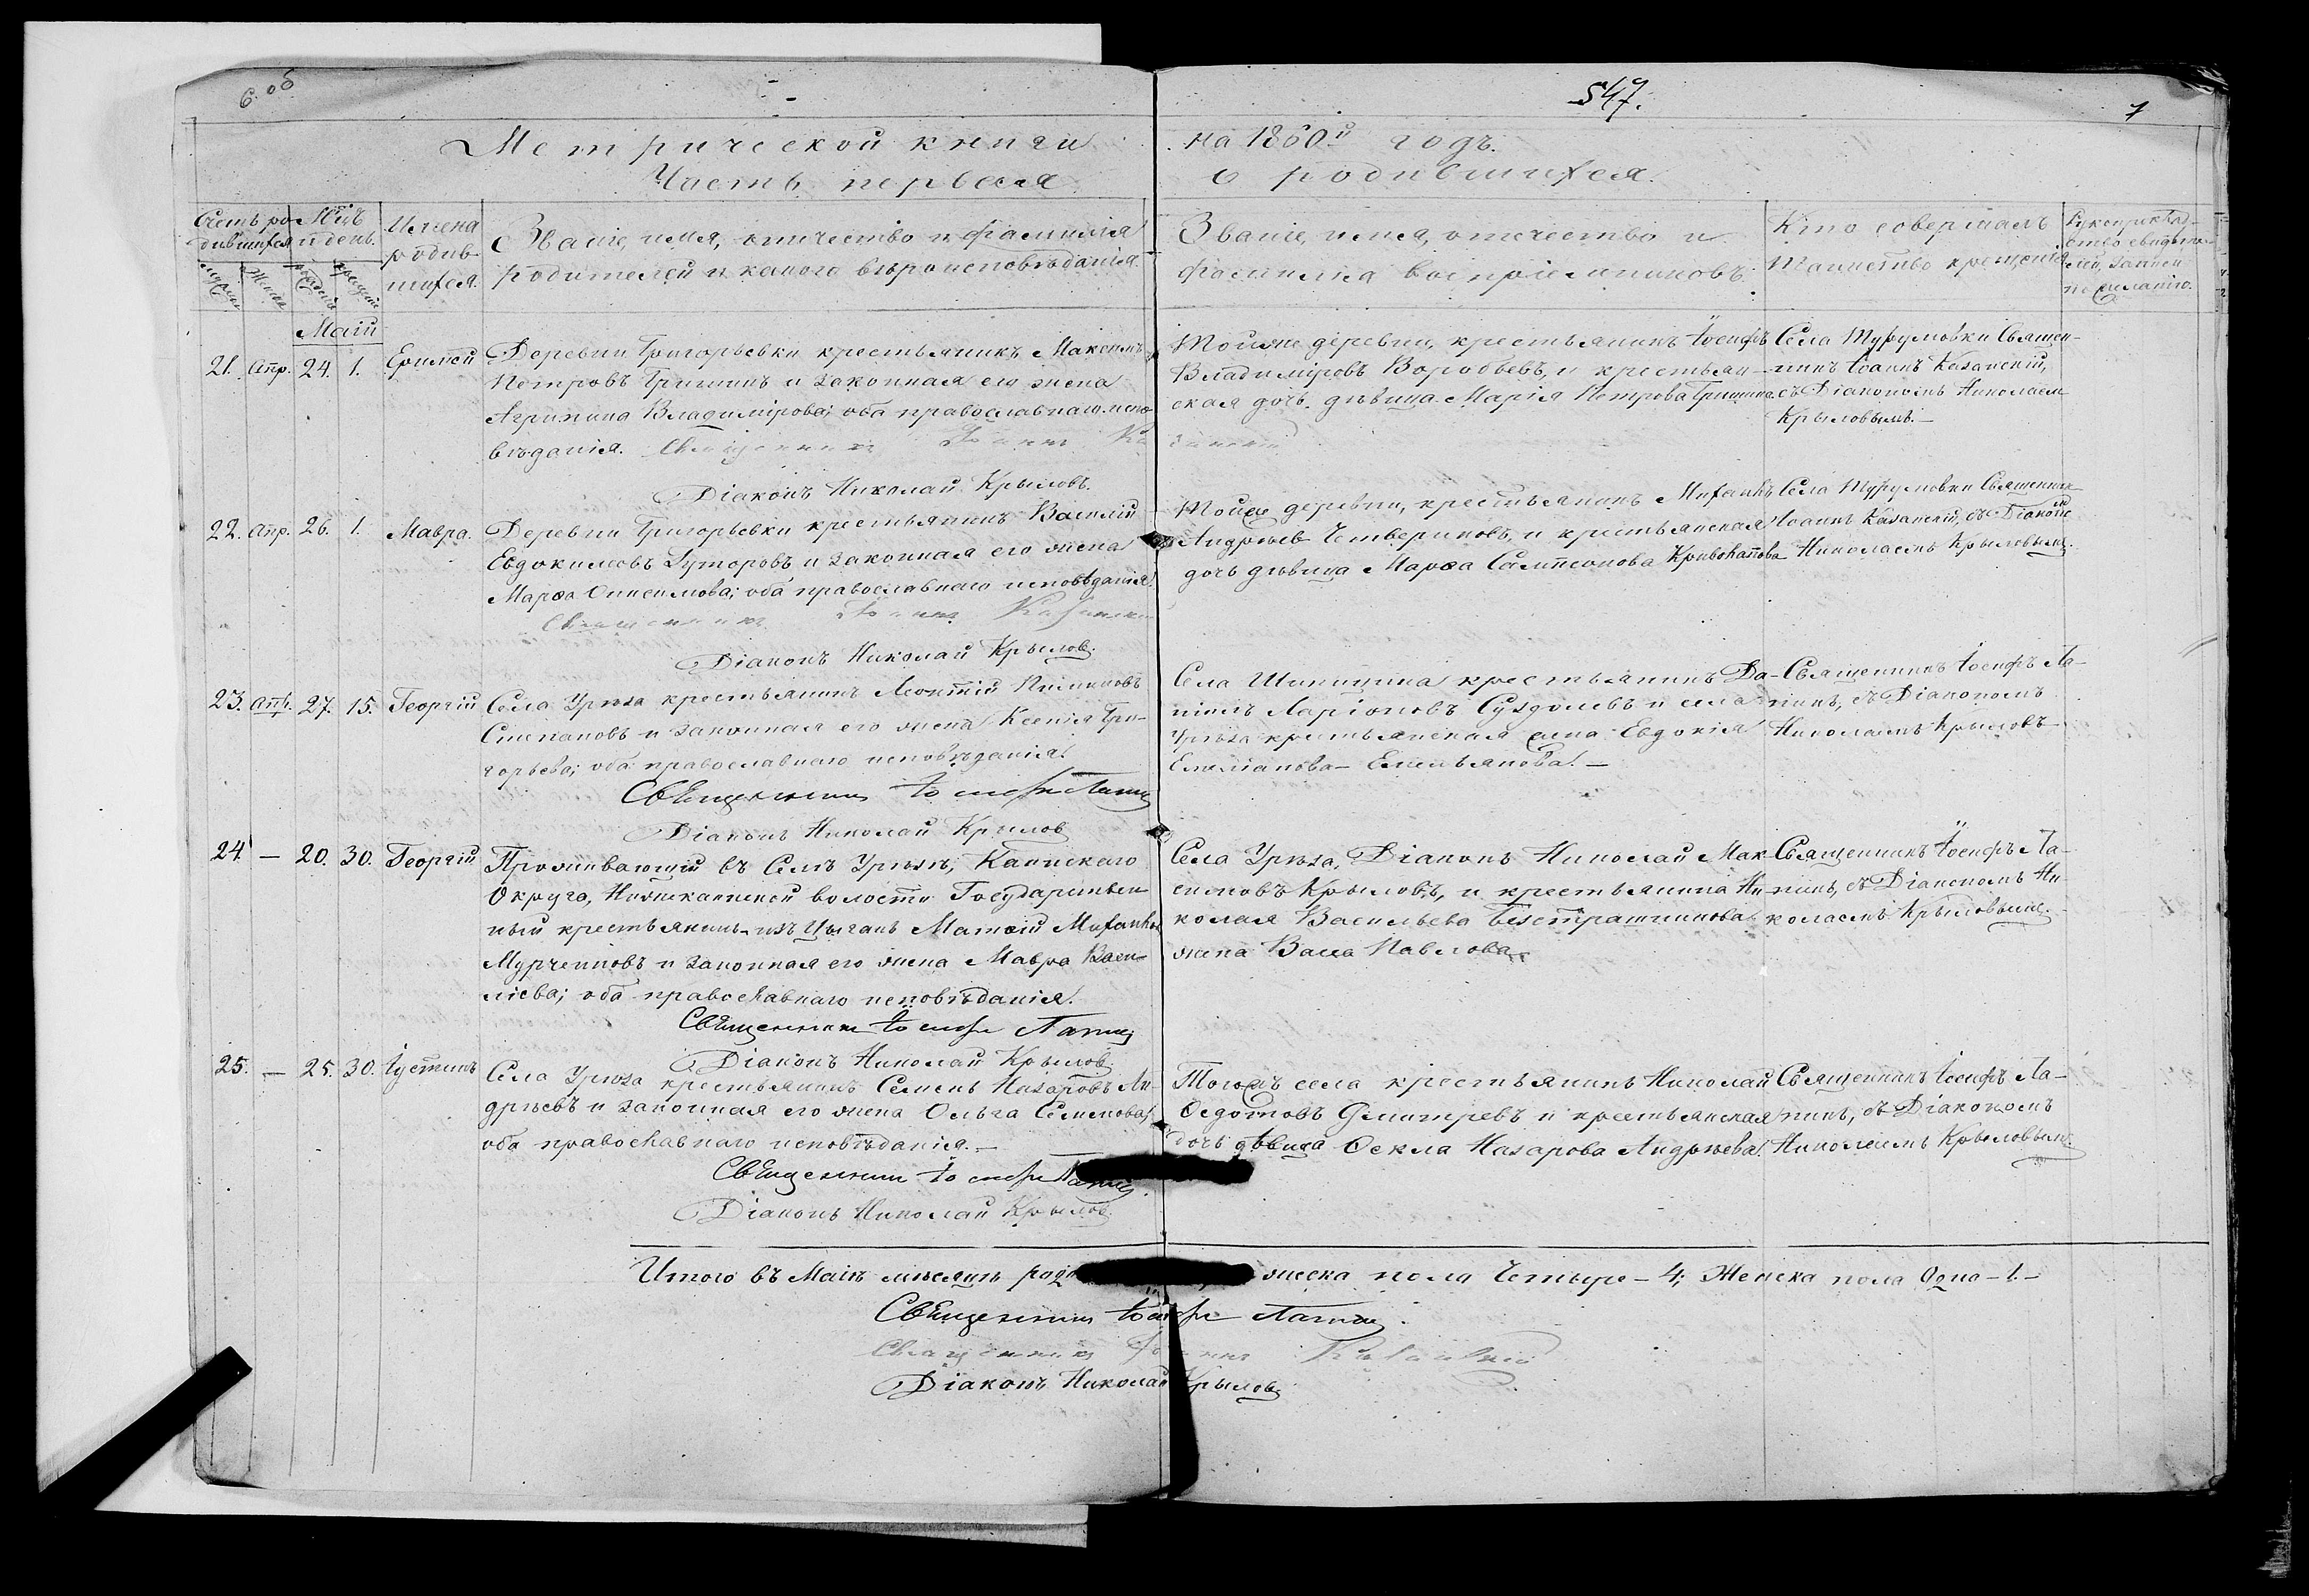 6. об
547.
7
Метрической книги на 1860й годъ.
Часть первая о родившихся.
Счетъ ро-
дившихся
мужска
женска
Мѣцъ
и день.
рожденія
крещенія
Имена
родив-
шихся.
Званіе, имя, отчество и фамилія
родителей и какого вѣроисповѣданія.
Званіе, имя, отчество и
фамилія воспріемниковъ.
Кто совершалъ
таинство крещенія
Рукоприклад-
ство свидѣте-
лей записи
по желанію.
Маій
21. Апр. 24. 1.
Деревни Григорьевки крестьянинъ Максимъ
Петровъ Гришинъ и законная его жена
Агрипина Владимірова; оба православнаго испо-
вѣданія. Священникъ Іоаннъ Ка
занскій
Діаконъ Николай Крыловъ.
Тойже деревни, крестьянинъ Іосифъ
Владиміровъ Воробьевъ, и крестьян-
ская дочь дѣвица Марія Петрова Гришина.
Села Турумовки Священ-
никъ Іоаннъ Казанскій,
съ Діакономъ Николаем
Крыловымъ.—
22. Апр. 26. 1. Мавра.
Деревни Григорьевки крестьянинъ Василій
Евдокимовъ Суторовъ и законная его жена
Марѳа Онисимова; оба православнаго исповѣданія.
Священникъ Іоаннъ Казанскій
Діаконъ Николай Крылов.
Тойже деревни, крестьянинъ Михаилъ
Андреевъ Четвериковъ, и крестьянская
дочь дѣвица Марѳа Сампсонова Кривохатова
Села Турумовки Священник
Іоаннъ Казанскій, съ Діакономъ
Николаемъ Крыловымъ.
23. Апр. 27. 15. Георгій
Села Урѣза крестьянинъ Леонтій Пименовъ
Степановъ и законная его жена Ксенія Гри-
горьева; оба православнаго исповѣданія.
Священникъ Іосифъ Лапин
Діаконъ Николай Крылов
Села Шипицина крестьянинъ Да-
ніилъ Ларіоновъ Суздолевъ и села
Урѣза крестьянская жена Евдокія
Емеліанова — Емельянова. —
Священникъ Іосифъ Ла-
пинъ, съ Діакономъ
Николаемъ Крыловъ-
24. — 20. 30. Георгій
Проживающій въ Селѣ Урѣзѣ, Каинскаго
Округа, Нижнекаинской волости Государствен-
ный крестьянинъ изъ Цыганъ Матѳій Михайлов
Мурченковъ и законная его жена Мавра Васи-
ліева; оба православнаго исповѣданія.
Священникъ Іосифъ Лапин
Діаконъ Николай Крылов
Села Урѣза, Діаконъ Николай Мак-
симовъ Крыловъ, и крестьянина Ни-
колая Васильева Безстрашникова
жена Васса Павлова.
Священникъ Іосифъ Ла-
пинъ, съ Діакономъ Ни-
колаемъ Крыловымъ.
25. — 25. 30. Іустинъ
Села Урѣза крестьянинъ Семенъ Назаровъ Ан-
дрѣевъ и законная его жена Ольга Семенова;
оба православнаго исповѣданія. —
Священникъ Іосифъ Лапин
Діаконъ Николай Крылов.
Тогожъ села крестьянинъ Николай
Ѳедотовъ Дмитревъ и крестьянская
дочь дѣвица Ѳекла Назарова Андрѣева.
Священникъ Іосифъ Ла-
пинъ, съ Діакономъ
Николаемъ Крыловымъ.
Итого въ Маіѣ мѣсяцѣ род мужска пола Четыре — 4; Женска пола Одна — 1. —
Священникъ Іосифъ Лапин.
Священникъ Іоаннъ Казанскій
Діаконъ Николай Крылов.